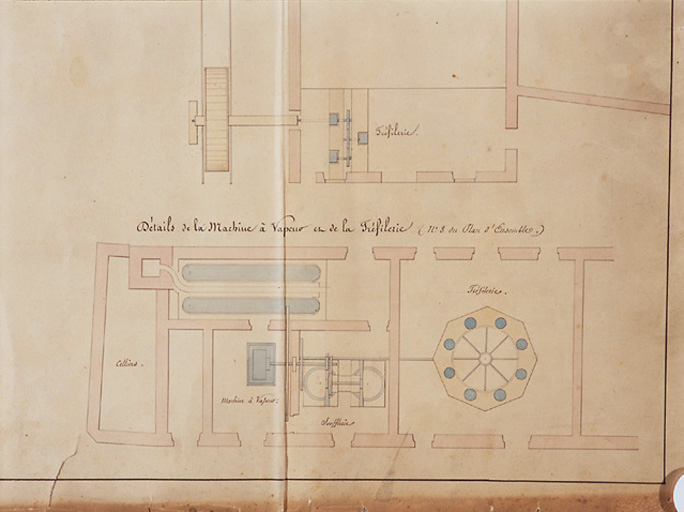 Tréfilerie.
Détails de la Machine à Vapeur et de la Tréfilerie (N° 8 du Plan d'Ensemble.)
Tréfilerie.
Machine à Vapeur.
Soufflerie